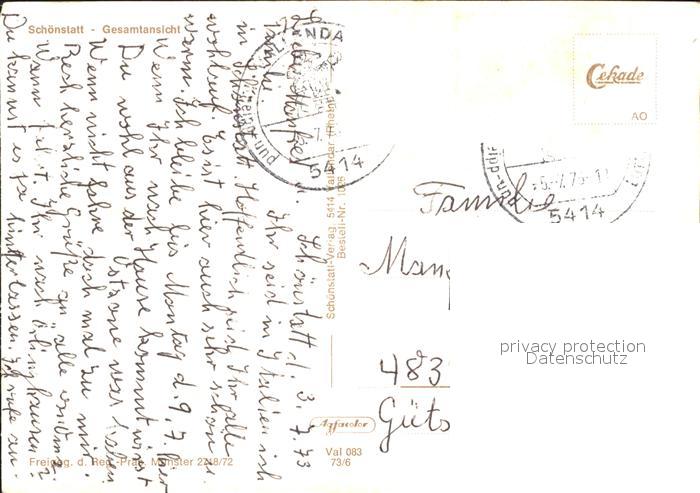 Schönstatt - Gesamtansicht
Schönstatt d. 3.7.73
Lieber Manfred
Familie. Ihr seid in Italien ich
in Schönstatt. Hoffentlich seid Ihr alle
wohlauf. Es ist hier auch sehr schön u.
warm. Ich bleibe bis Montag d. 9.7. hier
Wenn Ihr nach Hause kommt wirst
Du wohl aus der Ostzone was haben
Wenn nicht fahre doch mal zu mir.
Recht herzliche Grüße an alle
Wann fährt Ihr nach
Du kannst es ja hinterlassen. Ich rufe an.
Freigeg. d. Reg.-Präs. Münster 2718/72
Schönstatt-Verlag 5414 Vallendar (Rhein)
Bestell-Nr. 1006
Azfacolor
Val 083
73/6
5414
Cekade
AO
5414
Familie
Man
483
Güts
privacy protection
Datenschutz